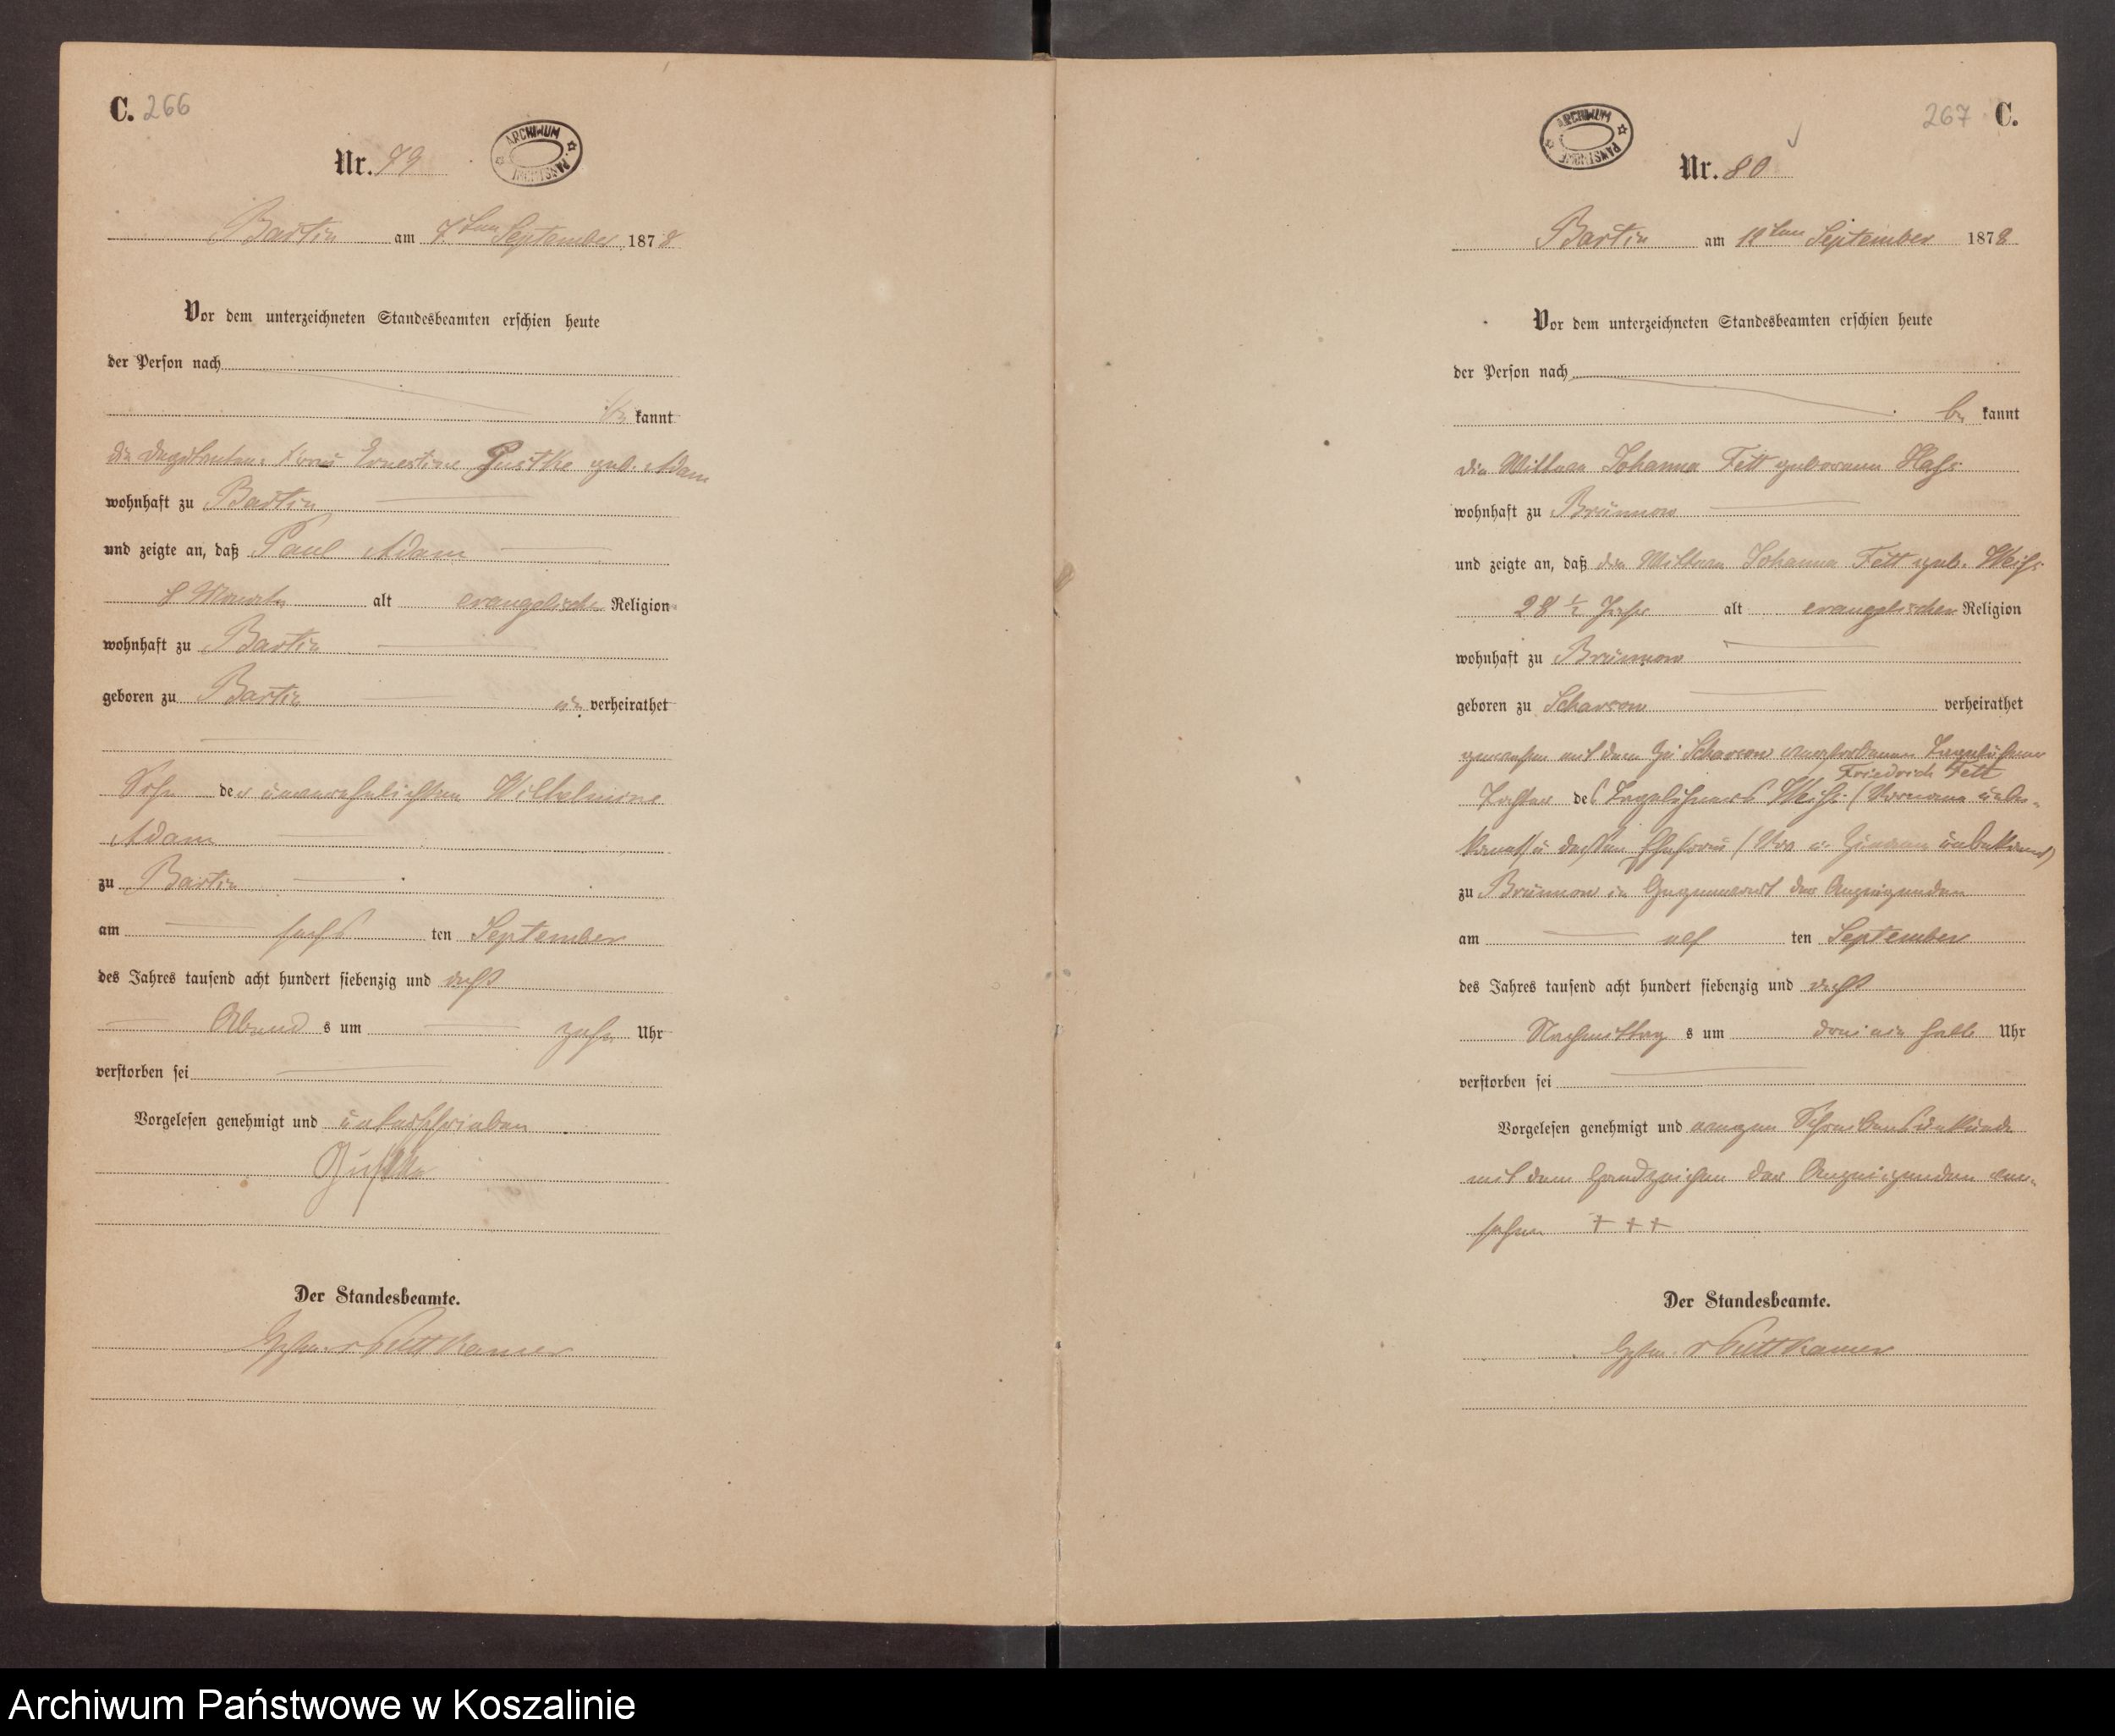 C. 266
Nr. 79
ARCHIWUM PAŃSTWOWE
Bartin am 7ten September 1878
Vor dem unterzeichneten Standesbeamten erschien heute
der Person nach
be kannt
die Frau Ernestine Gustke geb. Adam
wohnhaft zu Bartin
und zeigte an, daß Paul Adam
8 Monate alt evangelischer Religion
wohnhaft zu Bartin
geboren zu Bartin un verheirathet
Sohn der unverehelichten Wilhelmine
Adam
zu Bartin
am sechs ten September
des Jahres tausend acht hundert siebenzig und acht
Abend s um zehn Uhr
verstorben sei
Vorgelesen genehmigt und unterschrieben
Gustke
Der Standesbeamte.
v Puttkamer
267 C.
ARCHIWUM PAŃSTWOWE
Nr. 80
Bartin am 12ten September 1878
Vor dem unterzeichneten Standesbeamten erschien heute
der Person nach
be kannt
die Wittwe Johanna Fett geborene Hass
wohnhaft zu Brünnow
und zeigte an, daß die Wittwe Johanna Fett geb. Weiss
28 ½ Jahr alt evangelischer Religion
wohnhaft zu Brünnow
geboren zu Scharsow verheirathet
gewesen mit dem zu Scharsow verstorbenen Tagelöhner
Friedrich Fett
Tochter des Tagelöhners Weiss (Vorname unbe-
kannt) u dessen Ehefrau (Vor u Zuname unbekannt)
zu Brünnow in Gegenwart der Anzeigenden
am elf ten September
des Jahres tausend acht hundert siebenzig und acht
Nachmittag s um drei ein halb Uhr
verstorben sei
Vorgelesen genehmigt und wegen Schreibensunkunde
mit dem Handzeichen der Anzeigenden ver-
sehen + + +
Der Standesbeamte.
v Puttkamer
Archiwum Państwowe w Koszalinie